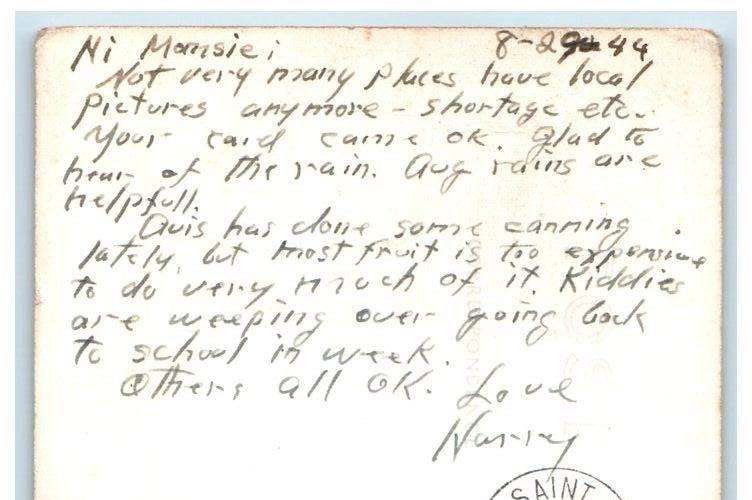 Hi Momsie; 8-29-44
Not very many places have local
pictures anymore - shortage etc.
Your card came OK. Glad to
hear of the rain. Aug rains are
helpfull.
Avis has done some canning
lately, but most fruit is too expensive
to do very much of it. Kiddies
are weeping over going back
to school in week.
Others all OK. Love
Harry
SAINT